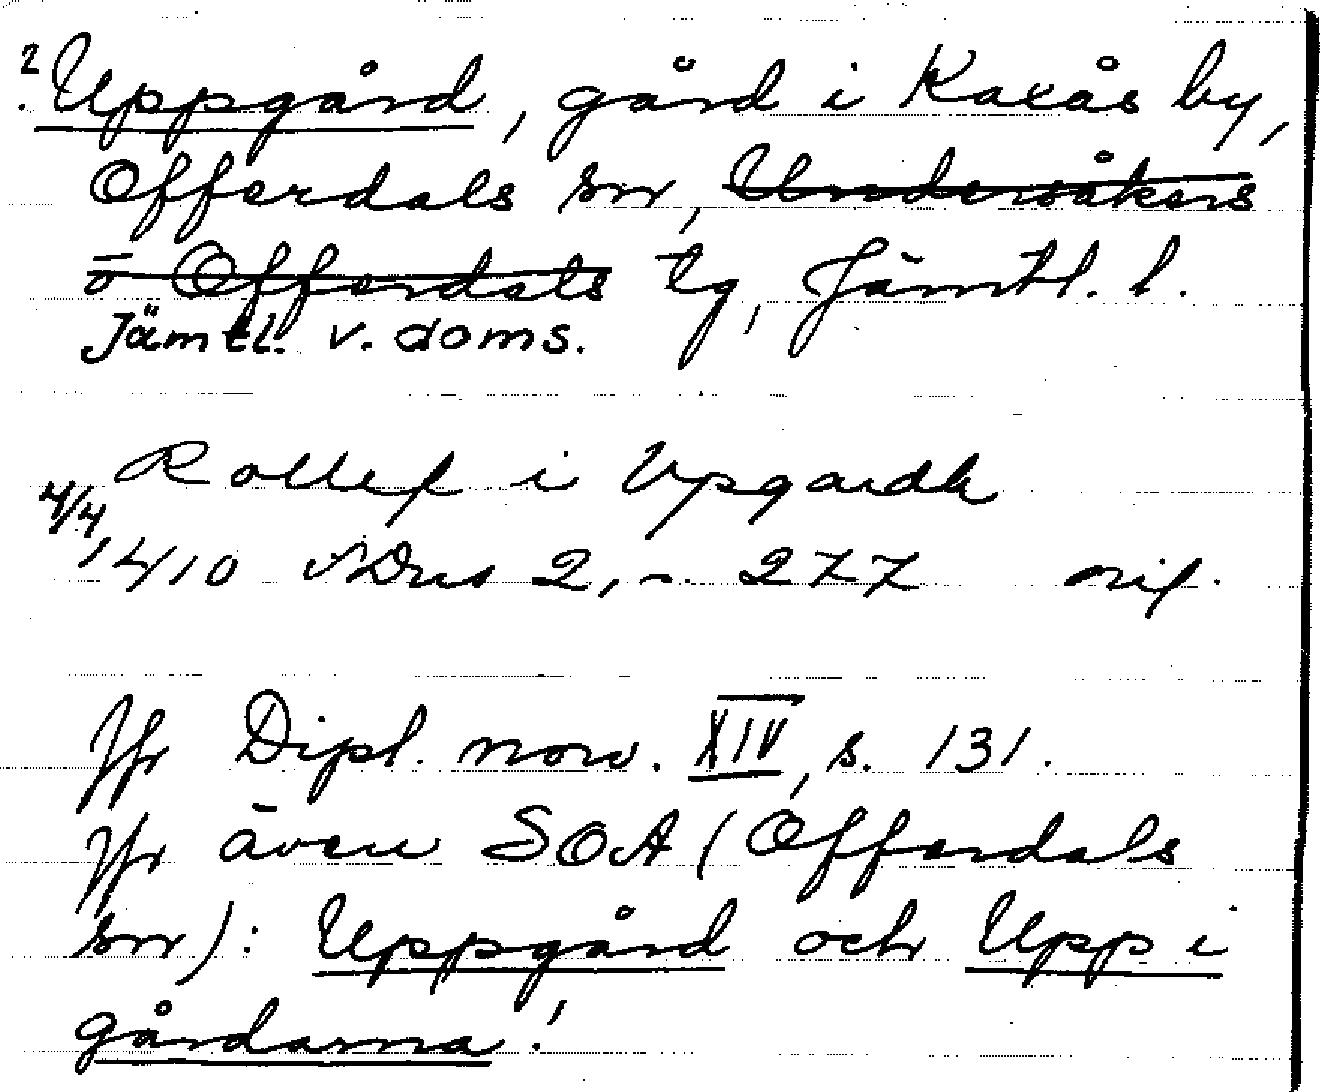 ? Uppgård, gård i Kaxås by,
Offerdals sn, Undersåkers
o Offerdals tg, Jämtl. l.
Jämtl. v. doms.
Rollef i Vpgardh
4/4 1410 NDns 2, 277 orig.
Jfr Dipl. norv. XIV, s. 131.
Jfr även SOA (Offerdals
sn): Uppgård och Upp i
gårdarna!